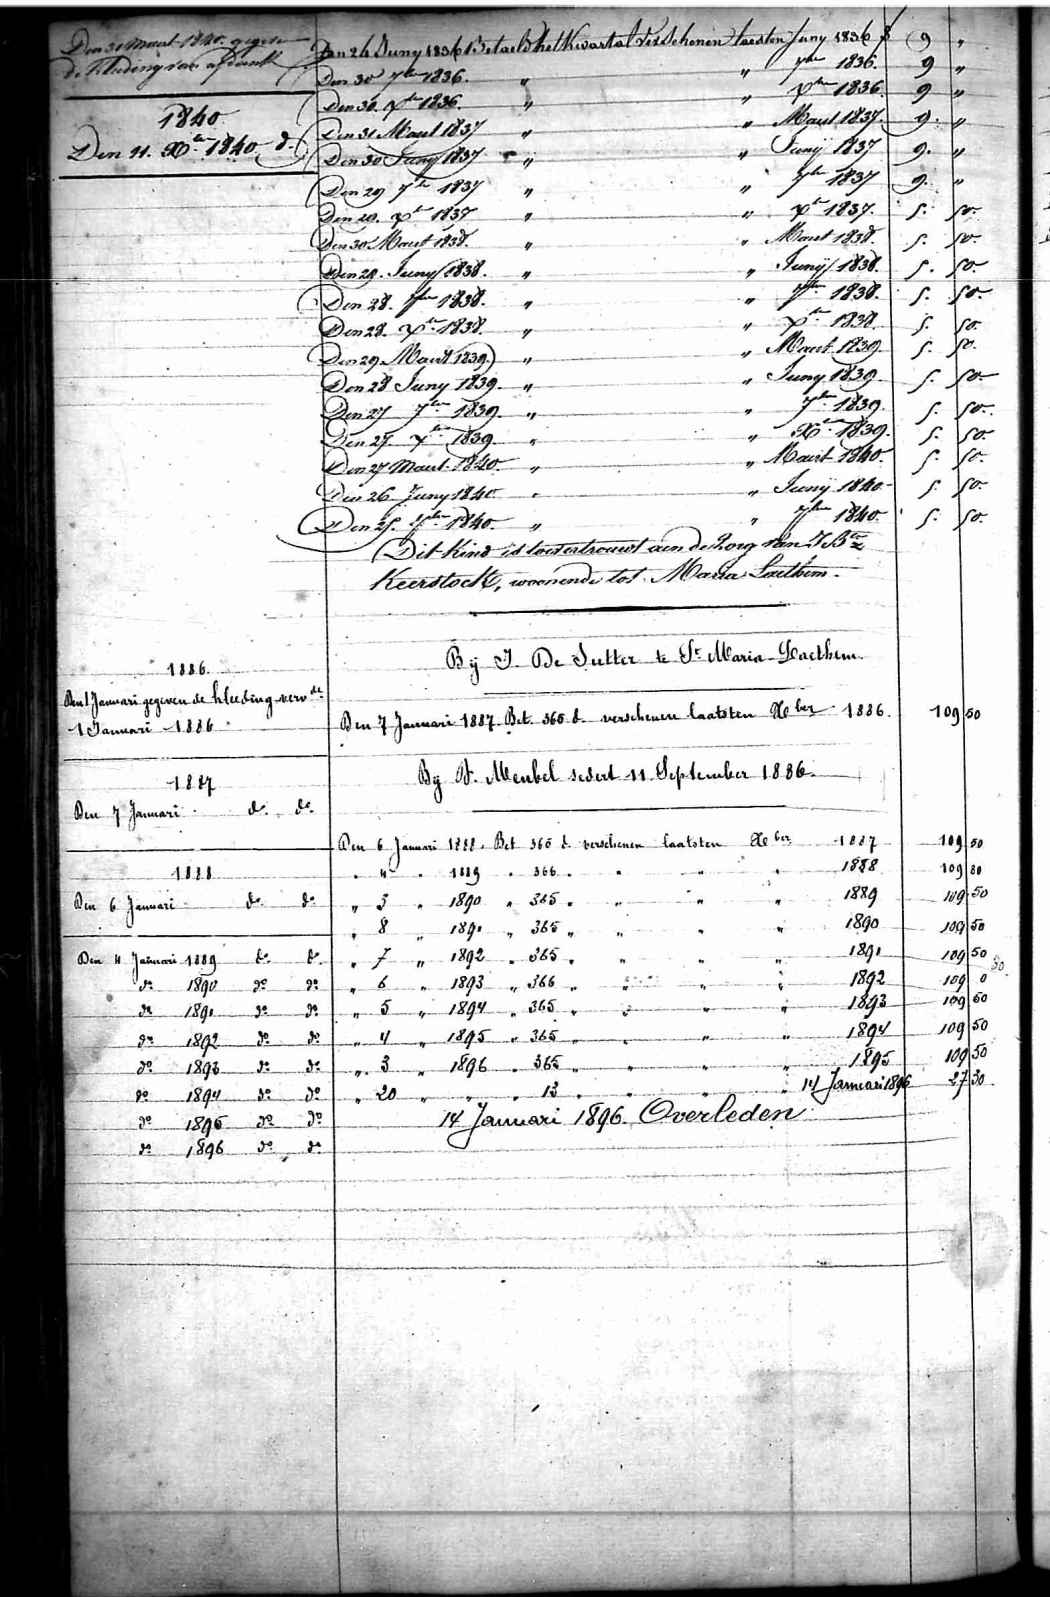 Den 31 Maart 1840. gegeven
de kleeding van afdank
1840
Den 11. Xber 1840 do.
Den 24 Juny 1836 Betaeld het Kwartal verschenen laesten Juny 1836 f 9 "
Den 30 7ber 1836. " " 7ber 1836. 9 "
Den 30. Xber 1836. " " Xber 1836 9 "
Den 31 Maart 1837 " " Maart 1837. 9. "
Den 30 Juny 1837 " " Junij 1837 9. "
Den 29 7ber 1837 " " 7ber 1837 9. "
Den 20. Xber 1837 " " Xber 1837. 5. 50.
Den 30 Maart 1838. " " Maart 1838. 5. 50.
Den 29. Juny 1838. " " Junij 1838. 5. 50.
Den 28. 7ber 1838. " " 7ber 1838. 5. 50.
Den 28. Xber 1838. " " Xber 1838 5. 50.
Den 29 Maart 1839. " " Maart 1839 5. 50.
Den 28 Juny 1839. " " Juny 1839 5. 50.
Den 27 7ber 1839. " " 7ber 1839. 5. 50.
Den 27. Xber 1839. " " Xber 1839. 5. 50.
Den 27 Maart 1840. " " Maart 1840. 5. 50.
Den 26 Juny 1840. " " Junij 1840. 5. 50.
Den 25. 7ber 1840. " " 7ber 1840. 5. 50.
Dit kind is toevertrouwt aen de zorg van J Bte
Keerstock, woonende tot Maria Laethem.
1886.
Den 1 Januari gegeven de kleeding verv de
1 Januari 1886
By J. De Sutter te St Maria-Laethem.
Den 7 Januari 1887. Bet. 365 d. verschenen laatsten Xber 1886. 109 50
1887
Den 7 Januari do. do.
By B. Meubel sedert 11 September 1886.
1888
Den 6 Januari do do
Den 6 Januari 1888. Bet 365 d. verschenen laatsten Xber 1887 109 50
" 4 " 1889 " 366 " " " " 1888 109 80
" 3 " 1890 " 365 " " " " 1889 109 50
" 8 " 1891 " 365 " " " " 1890 109 50
" 7 " 1892 " 365 " " " " 1891 109 50
" 6 " 1893 " 366 " " " " 1892 109 0 80
" 5 " 1894 " 365 " " " " 1893 109 50
" 4 " 1895 " 365 " " " " 1894 109 50
" 3 " 1896 " 365 " " " " 1895 109 50
" 20 " " " 13 " " " " 14 Januari 1896 27 30
14 Januari 1896. Overleden
Den 4 Januari 1889 do do.
do 1890 do do
do 1891 do do
do 1892 do do
do 1893 do do
do 1894 do do
do 1895 do do
do 1896 do do.